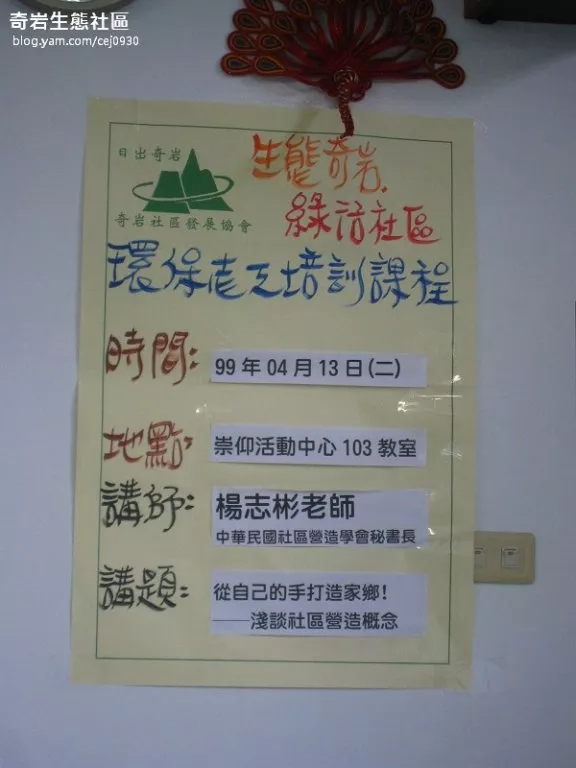 奇岩生態社區
blog.yam.com/cej0930
日出奇岩
奇岩社區發展協會
生態奇岩.
綠活社區
環保志工培訓課程
時間:
99 年 04 月 13 日(二)
地點:
崇仰活動中心 103 教室
講師:
楊志彬老師
中華民國社區營造學會秘書長
講題:
從自己的手打造家鄉!
——淺談社區營造概念